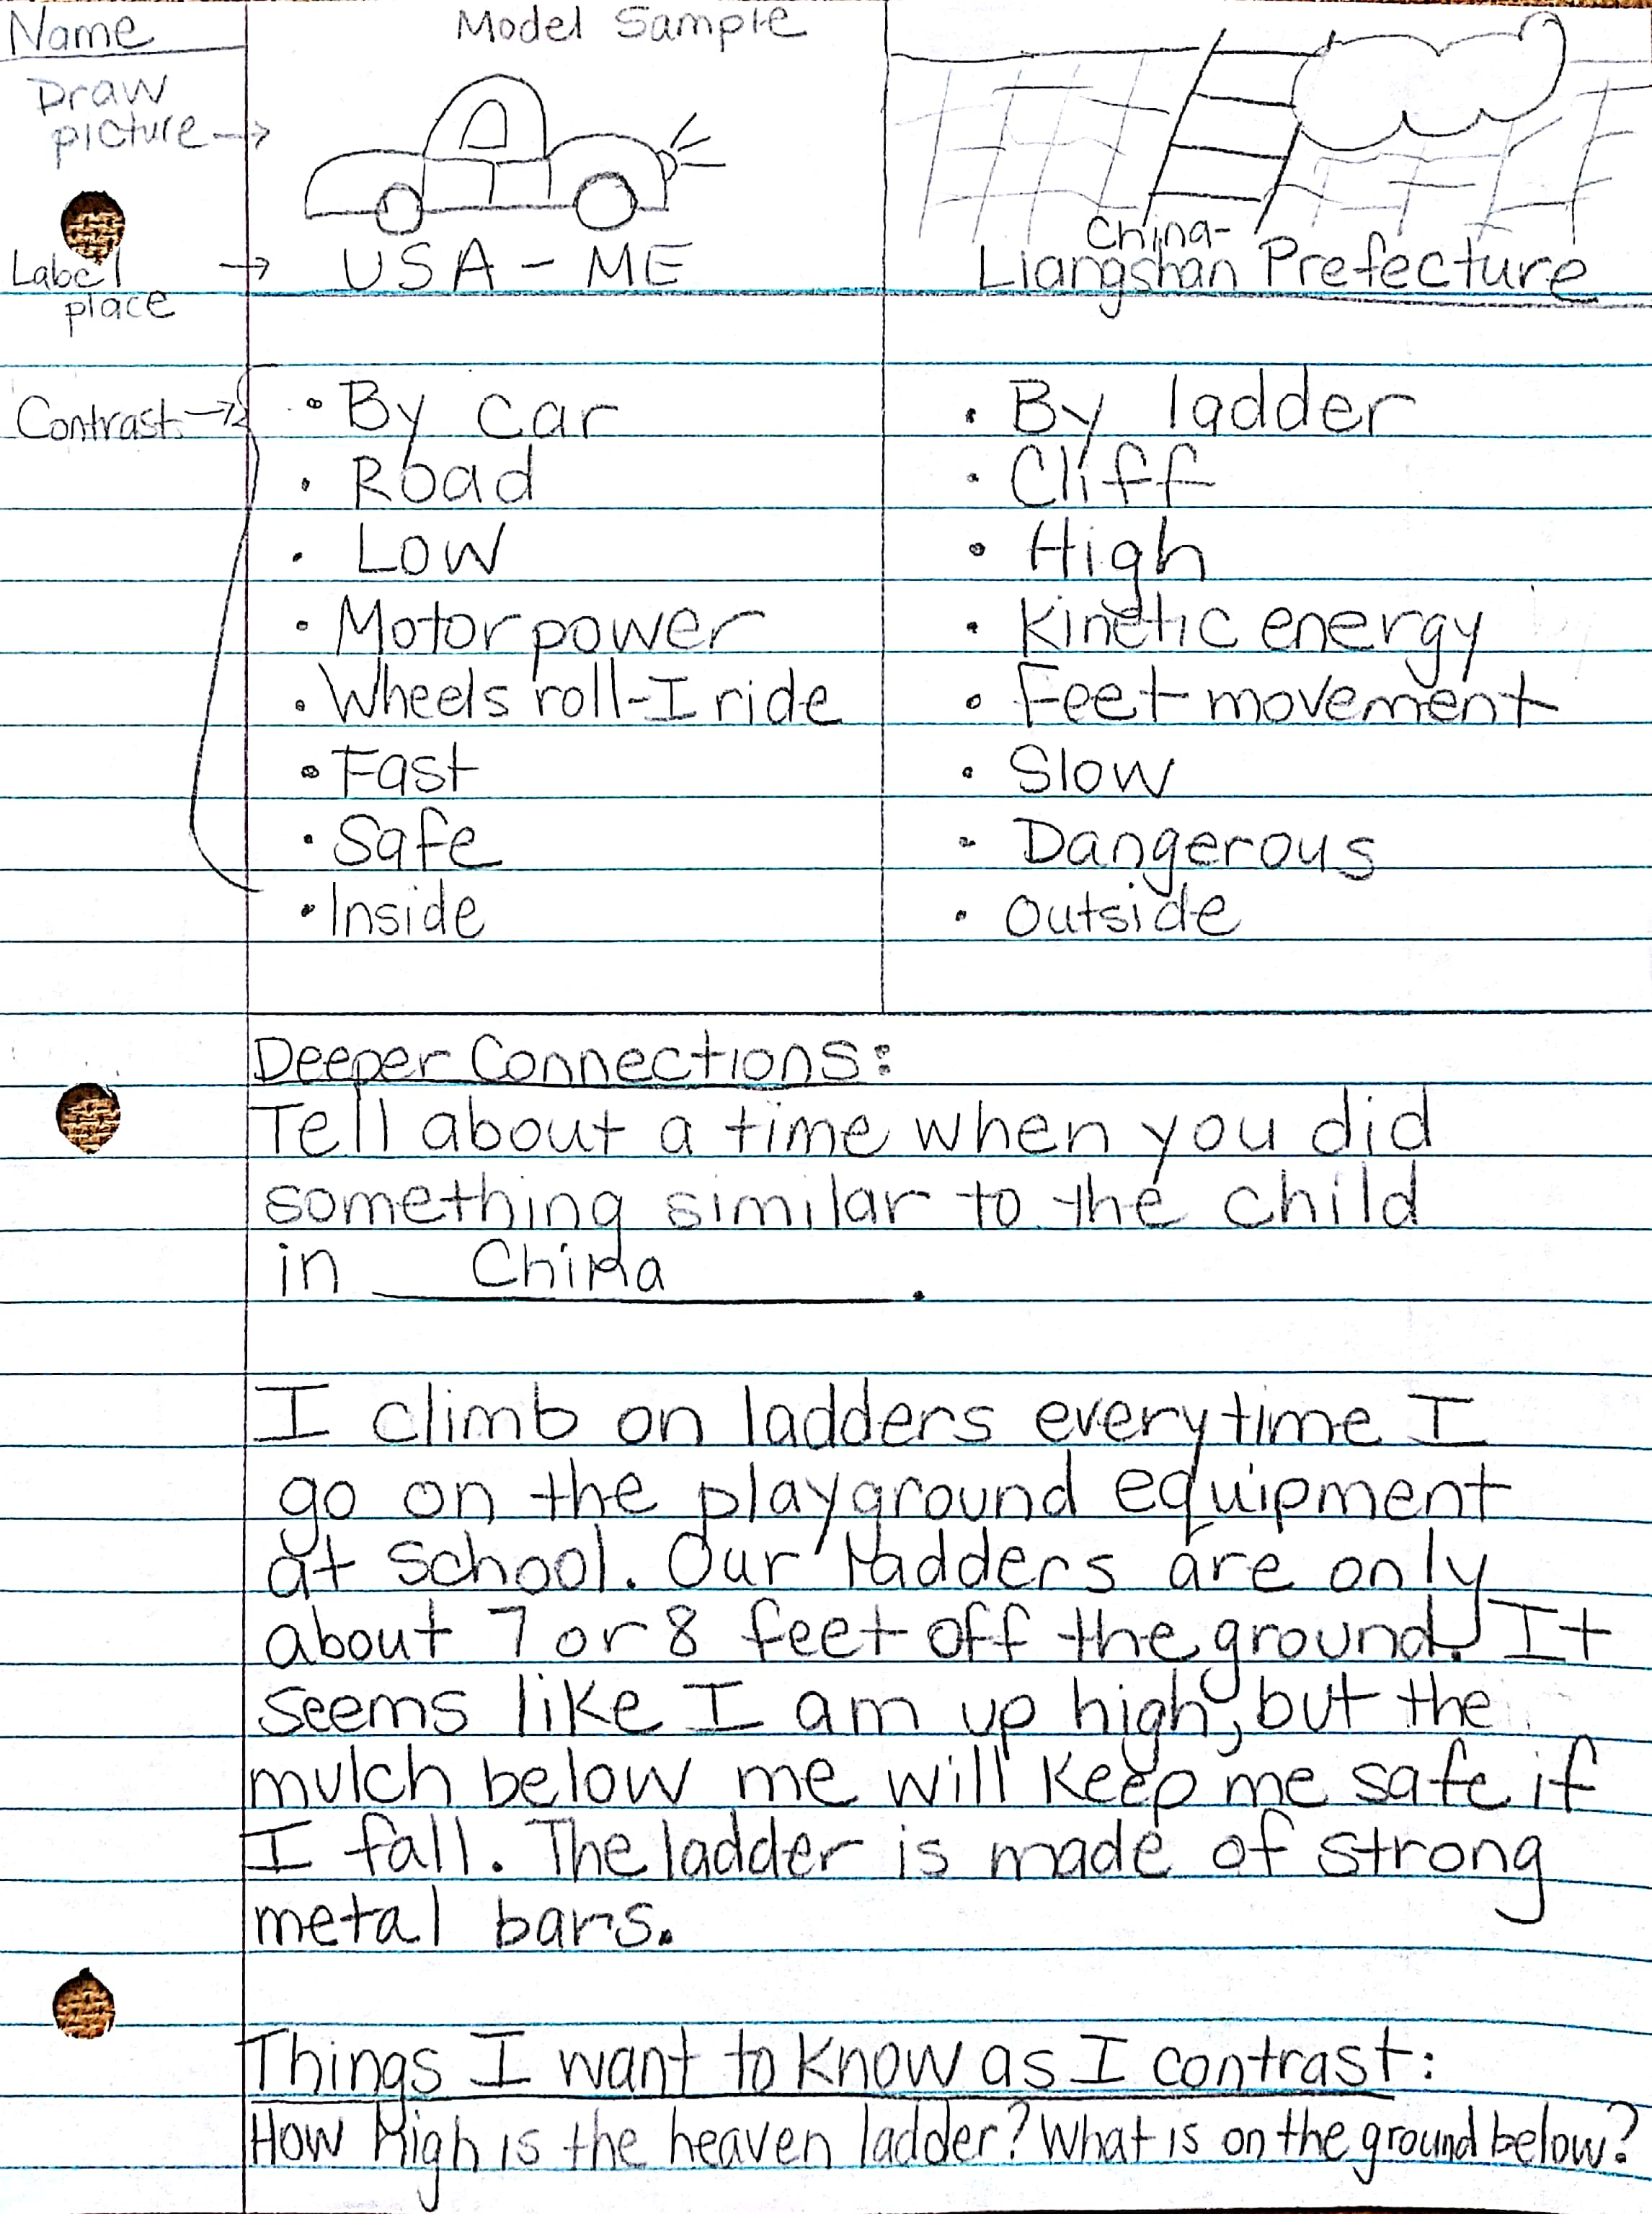 Name
Model Sample
Draw
picture →
Label →
place
USA - ME
China-
Liangshan Prefecture
Contrast →
• By car
• Road
• Low
• Motor power
• Wheels roll-I ride
• Fast
• Safe
• Inside
• By ladder
• Cliff
• High
• Kinetic energy
• Feet movement
• Slow
• Dangerous
• Outside
Deeper Connections:
Tell about a time when you did
something similar to the child
in China.
I climb on ladders everytime I
go on the playground equipment
at school. Our ladders are only
about 7 or 8 feet off the ground. It
seems like I am up high, but the
mulch below me will keep me safe if
I fall. The ladder is made of strong
metal bars.
Things I want to know as I contrast:
How high is the heaven ladder? What is on the ground below?